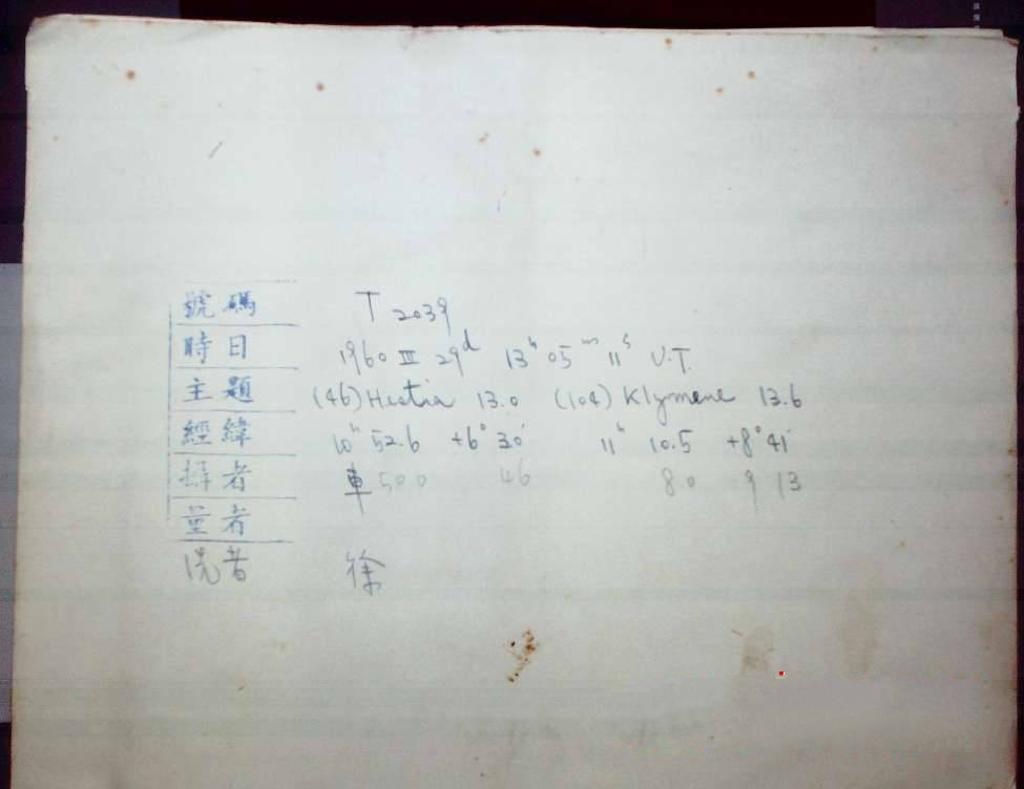 號碼 T 2039
時日 1960 III 29d 13h 05m 11s U.T.
主題 (46) Hestia 13.0 (104) Klymene 13.6
經緯 10h 52.6 +6°30' 11h 10.5 +8°41'
攝者 車 500 46 80 9 13
量者
洗者 徐